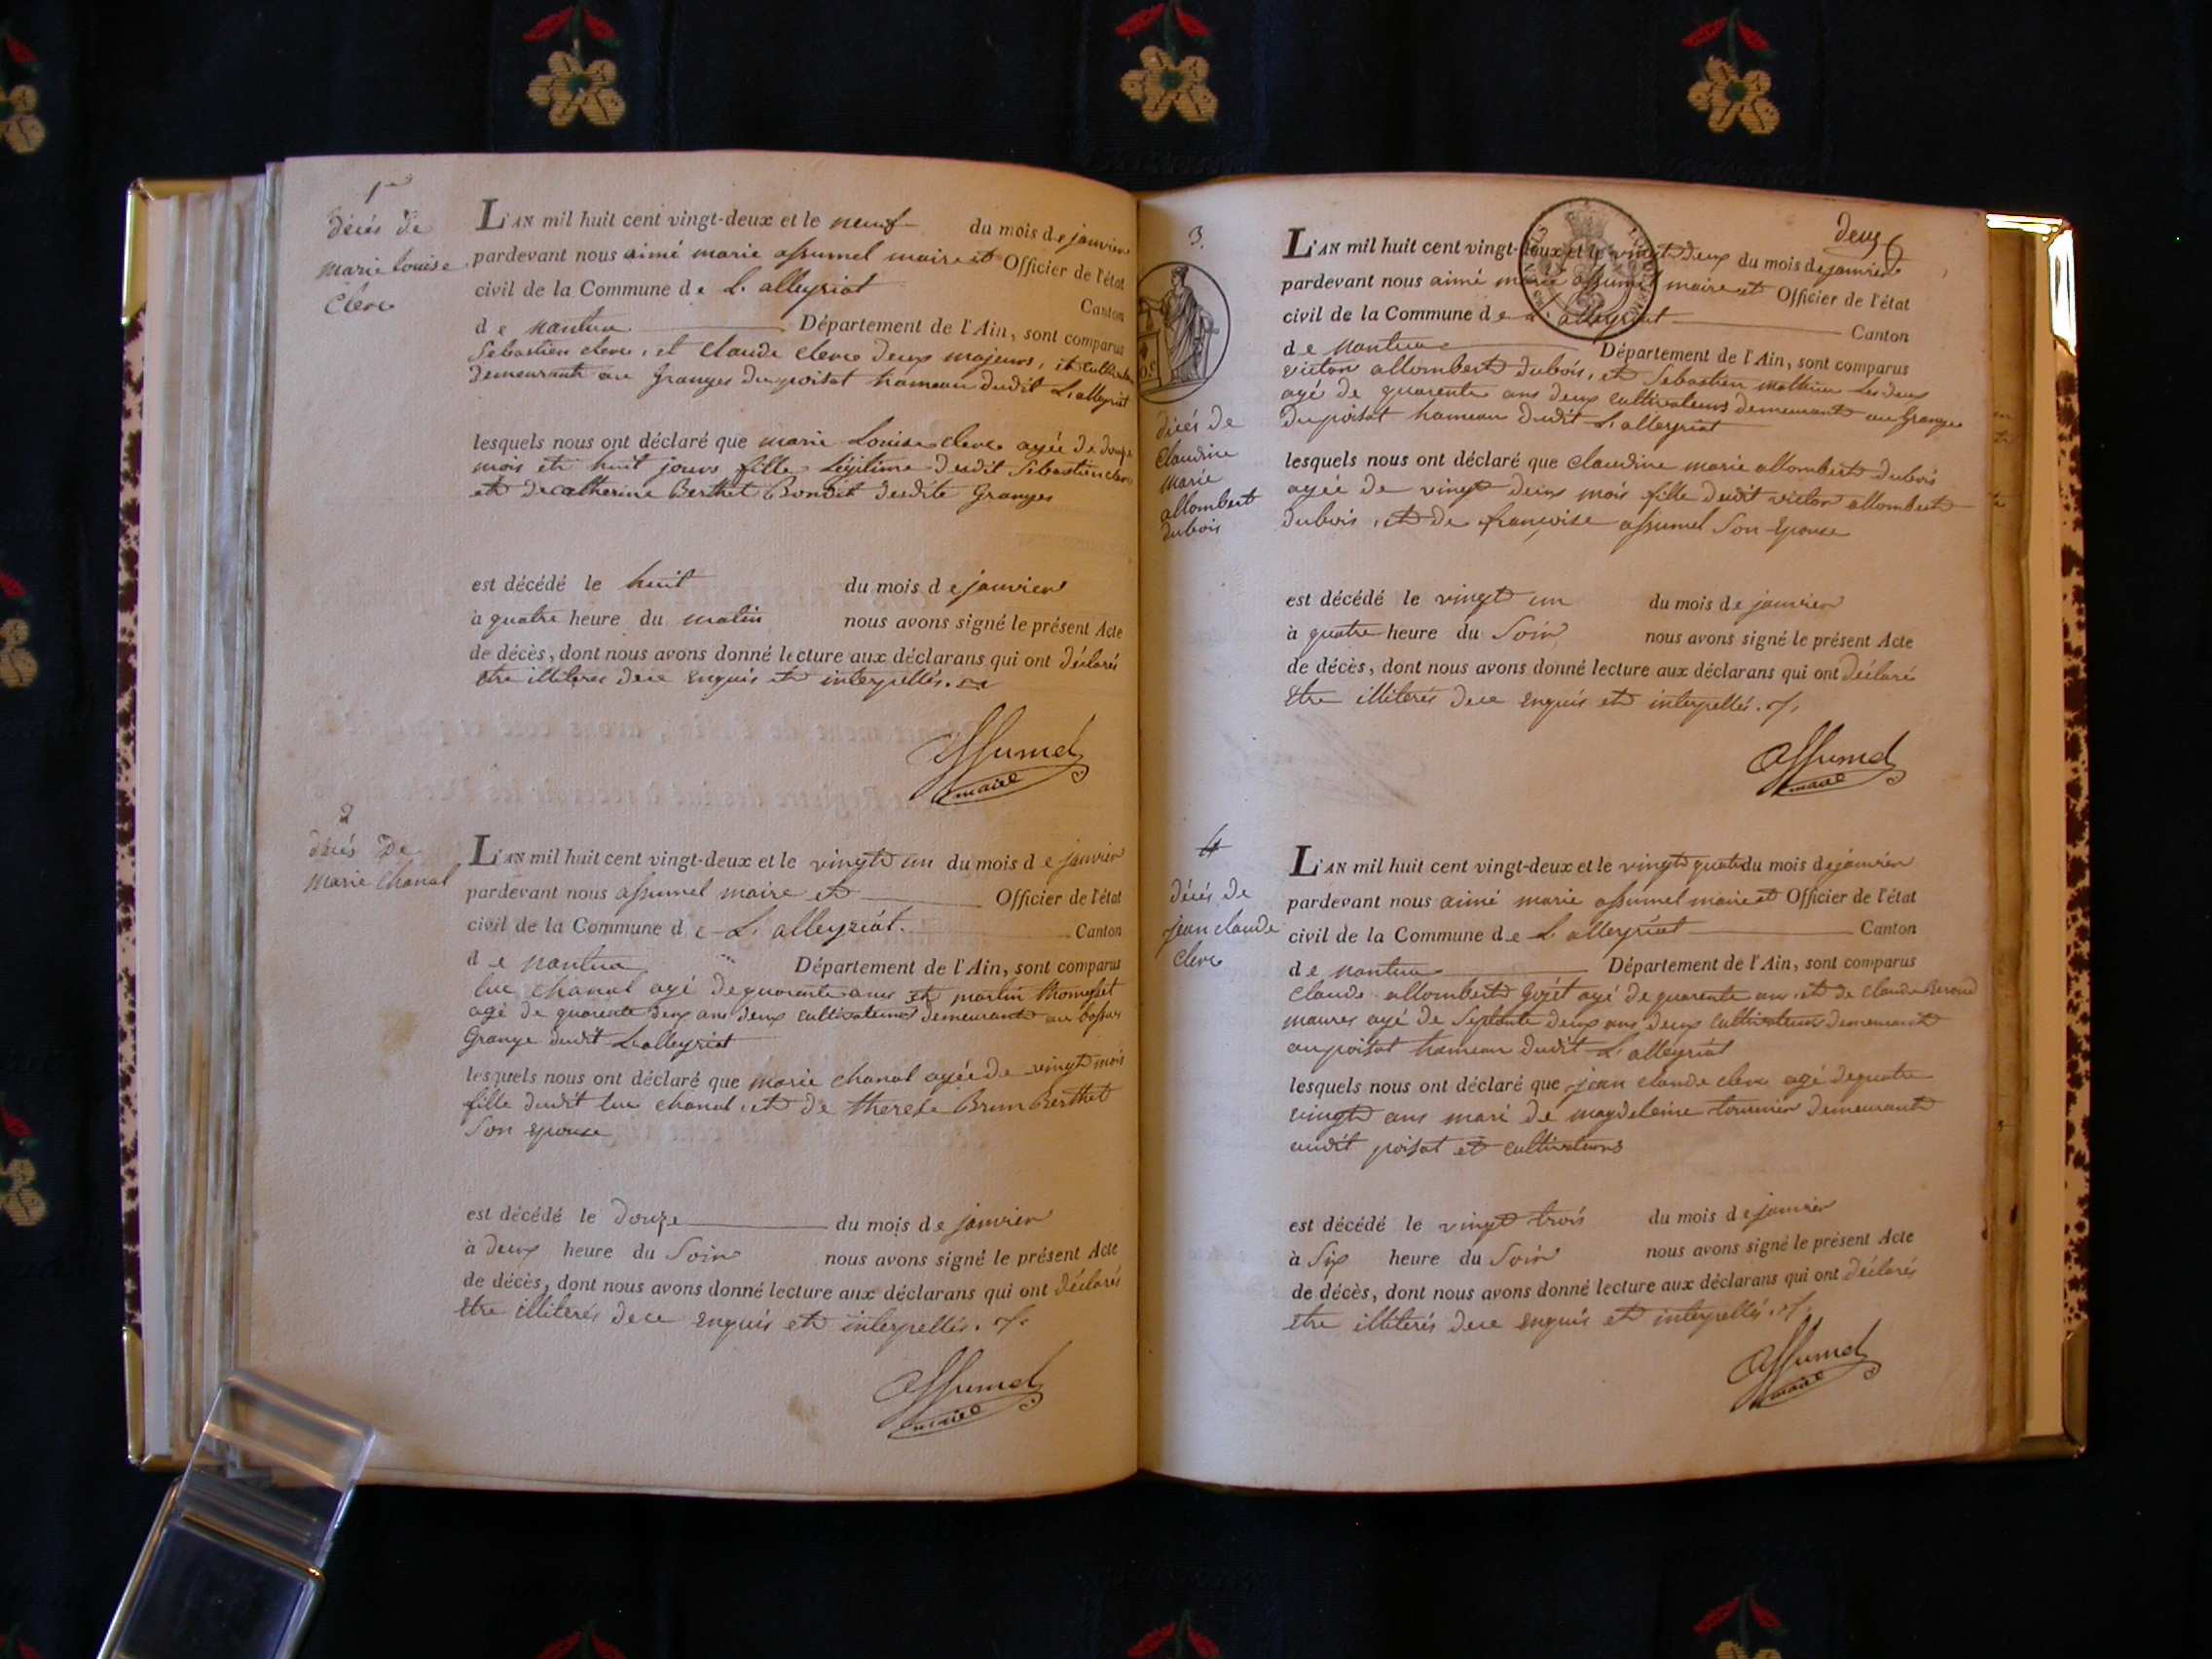 1er
décés de
marie Louise
Clerc
L'AN mil huit cent vingt-deux et le neuf du mois de janvier
pardevant nous aimé marie assumel maire et Officier de l'état
civil de la Commune de L'alleyriat
Canton
de nantua Département de l'Ain, sont comparus
Sebastien clerc, et Claude clerc deux majeurs, et cultivateurs
demeurants au Granges du poisat hameau dudit L'alleyriat
lesquels nous ont déclaré que marie Louise clerc agée de douze
mois et huit jours fille légitime dudit Sebastien clerc
et de catherine Berthet Bondet desdite Granges
est décédé le huit du mois de janvier
à quatre heure du matin nous avons signé le présent Acte
de décès, dont nous avons donné lecture aux déclarans qui ont déclarés
etre illiterés de ce enquis et interpellés.
assumel
maire
2
décés de
Marie Chanal
L'AN mil huit cent vingt-deux et le vingt un du mois de janvier
pardevant nous assumel maire et Officier de l'état
civil de la Commune de L'alleyriat. Canton
de nantua Département de l'Ain, sont comparus
luc chanal agé de quarante ans et martin thomasset
agé de quarente deux ans deux cultivateurs demeurant au
Grange dudit L'alleyriat
lesquels nous ont déclaré que marie chanal agée de vingt mois
fille dudit luc chanal, et de therese Brun Berthet
Son epouse
est décédé le douze du mois de janvier
à deux heure du Soir nous avons signé le présent Acte
de décès, dont nous avons donné lecture aux déclarans qui ont déclarés
etre illiterés de ce enquis et interpellés.
assumel
maire
deux
3.
décés de
Claudine
marie
allombert
dubois
L'AN mil huit cent vingt-deux et le vingt deux du mois de janvier
pardevant nous aimé marie assumel maire et Officier de l'état
civil de la Commune de L'alleyriat Canton
de nantua Département de l'Ain, sont comparus
victor allombert dubois, et Sebastien mathieu les deux
agé de quarente ans deux cultivateurs demeurant au Granges
du poisat hameau dudit L'alleyriat
lesquels nous ont déclaré que claudine marie allombert dubois
agée de vingt deux mois fille dudit victor allombert
dubois, et de françoise assumel Son Epouse
est décédé le vingt un du mois de janvier
à quatre heure du Soir nous avons signé le présent Acte
de décès, dont nous avons donné lecture aux déclarans qui ont déclaré
etre illiterés de ce enquis et interpellés.
assumel
maire
4
décés de
jean claude
clerc
L'AN mil huit cent vingt-deux et le vingt quatre du mois de janvier
pardevant nous aimé marie assumel maire et Officier de l'état
civil de la Commune de L'alleyriat Canton
de nantua Département de l'Ain, sont comparus
claude allombert Gojet agé de quarente ans et de claude Beroud
maures agé de septante deux ans deux cultivateurs demeurant
au poisat hameau dudit L'alleyriat
lesquels nous ont déclaré que jean claude clerc agé de quatre
vingt ans mari de magdeleine tournier demeurant
audit poisat et cultivateurs
est décédé le vingt trois du mois de janvier
à Six heure du Soir nous avons signé le présent Acte
de décès, dont nous avons donné lecture aux déclarans qui ont déclarés
etre illiterés de ce enquis et interpellés.
assumel
maire